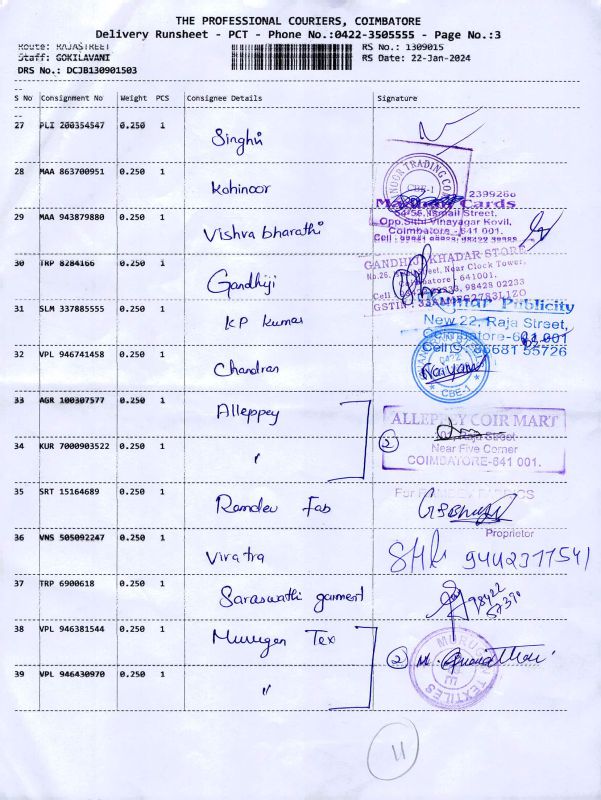 THE PROFESSIONAL COURIERS, COIMBATORE
Delivery Runsheet - PCT - Phone No.:0422-3505555 - Page No.:3
Route: RAJASTREET
RS No.: 1309015
Staff: GOKILAVANI
RS Date: 22-Jan-2024
DRS No.: DCJB130901503
S No Consignment No Weight PCS Consignee Details Signature
27 PLI 200354547 0.250 1 Singhvi
28 MAA 863700951 0.250 1 Kohinoor
TRADING CO
CBE-1
239926
Cards
54-56, Ismail Street,
Opp.Sithi Vinayagar Kovil,
Coimbatore - 641 001.
29 MAA 943879880 0.250 1 Vishva bharathi
30 TRP 8284166 0.250 1 Gandhiji
GANDHIJI KHADAR STORE
Near Clock Tower,
Coimbatore - 641001.
98428 02233
31 SLM 337885555 0.250 1 KP Kumar
Publicity
New 22, Raja Street,
Coimbatore-641 001
Cell : 86681 55726
32 VPL 946741458 0.250 1 Chandran
0422
CBE-1
33 AGR 100307577 0.250 1 Alleppey
ALLEPPEY COIR MART
Raja Street
Near Five Corner
COIMBATORE-641 001.
34 KUR 7000903522 0.250 1 "
2
35 SRT 15164689 0.250 1 Ramdev Fab
For
Proprietor
36 VNS 505092247 0.250 1 Viratra
9442377541
37 TRP 6900618 0.250 1 Saraswathi garment
98422
57390
38 VPL 946381544 0.250 1 Murugan Tex
2
MURUGAN TEXTILES
39 VPL 946430970 0.250 1 "
11